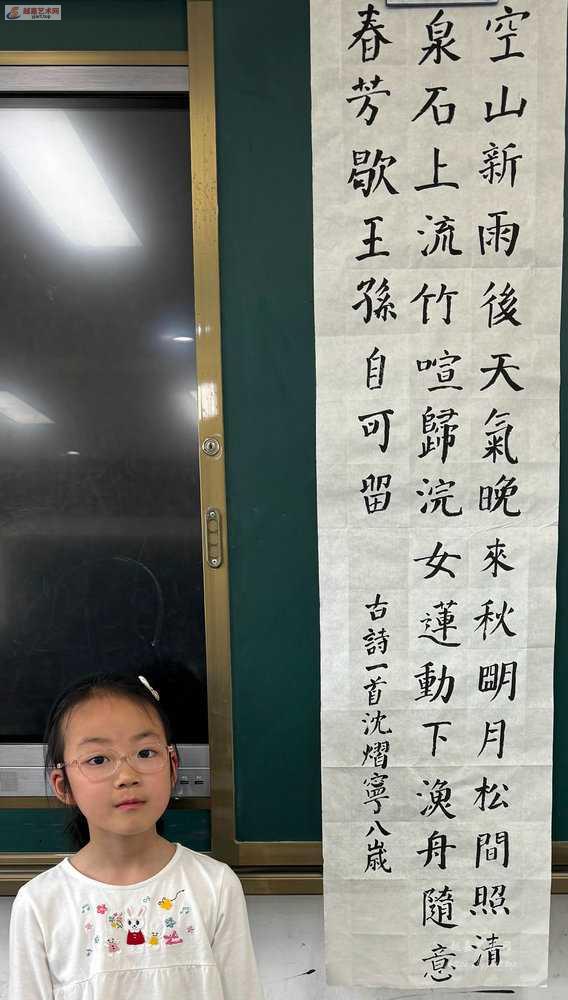 越嘉艺术网
yjart.top
空山新雨後天氣晚來秋朙月松間照清
泉石上流竹喧歸浣女蓮動下漁舟隨意
春芳歇王孫自可留
古詩一首沈熠寧八歲